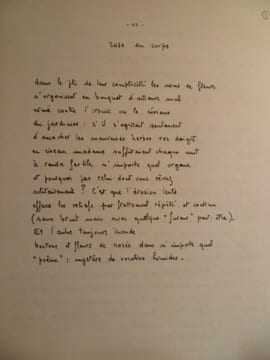 - 45 -
rose en corps
dans le pli de leur complicité les noms de fleurs
s'organisent en bouquet d'ailleurs mal
armé contre l'ironie ou le sérieux
du jardinier : s'il s'agissait seulement
d'arracher les mauvaises herbes vos doigts
en ciseau madame suffiraient chaque nuit
à rendre fertile n'importe quel organe
et pourquoi pas celui dont vous rêviez
solitairement ? C'est que l'érosion lente
efface les reliefs par frottement répété et continu
(sans bruit mais avec quelque "fureur" peut-être).
Et l'autre toujours inonde
boutons et fleurs de rosée dans n'importe quel
"poème" : mystère de vocation humide.